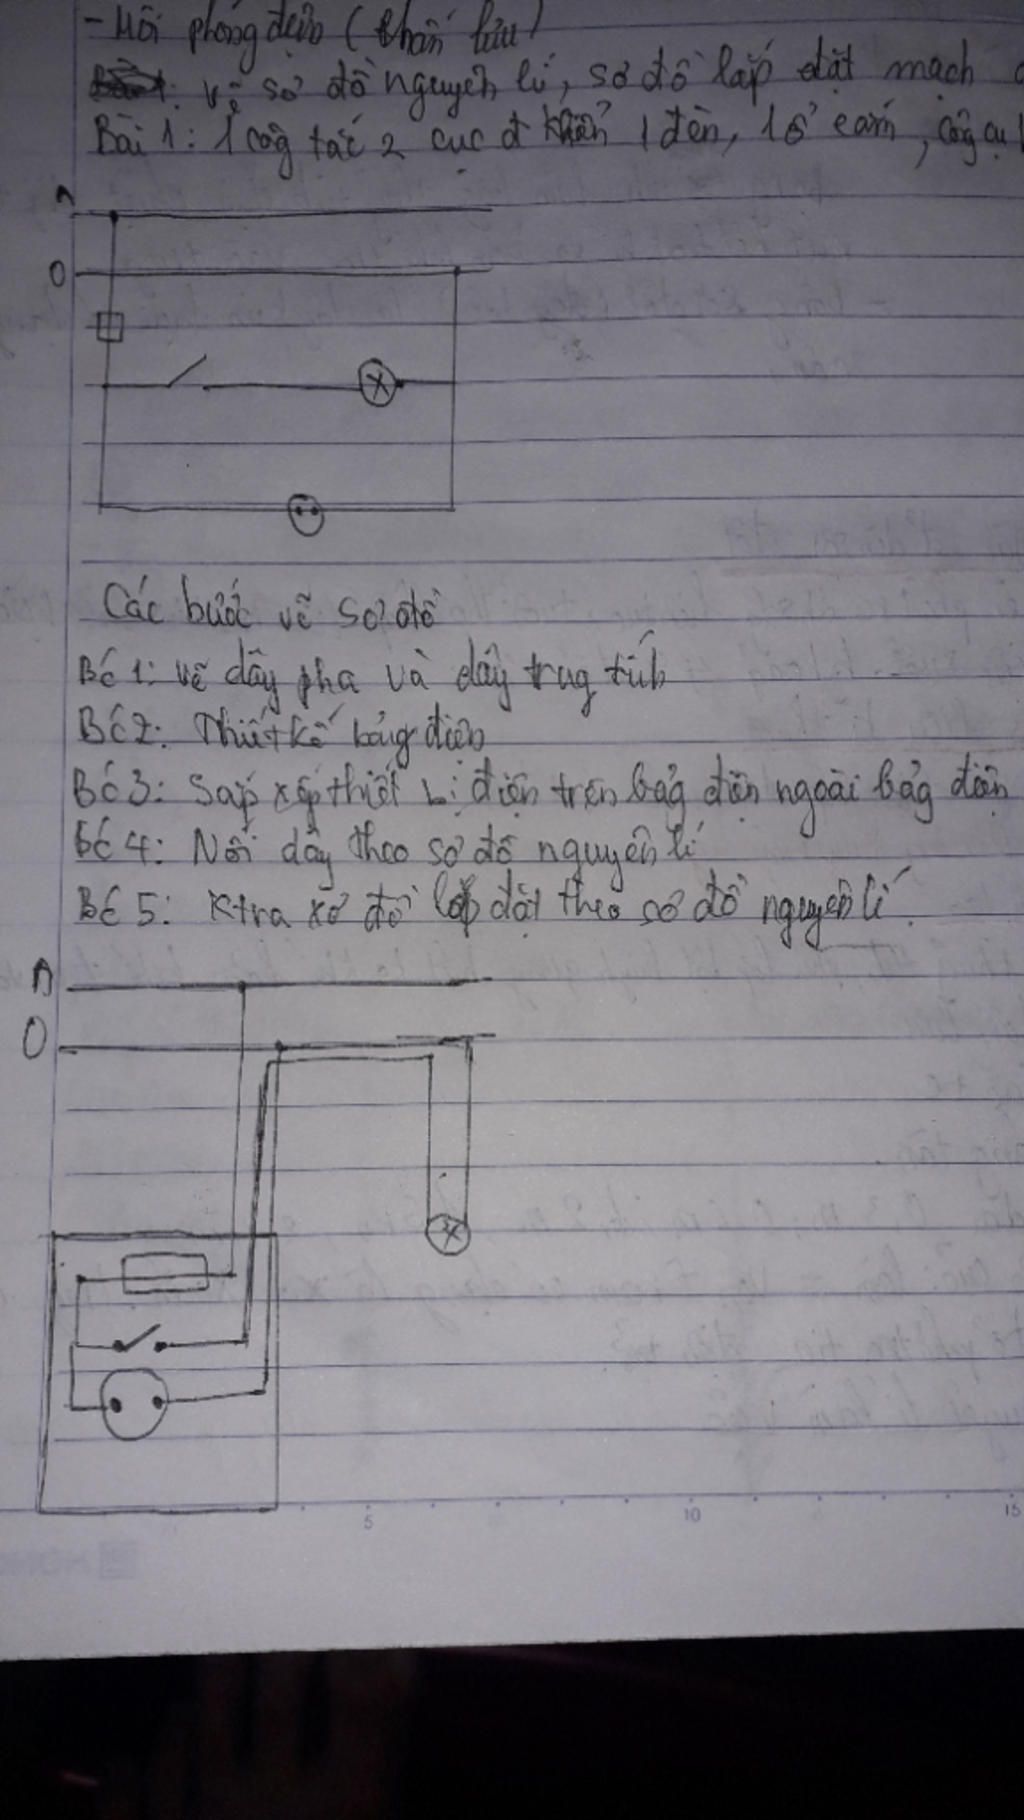 - Mồi phóng điện (chấn lưu)
vẽ sơ đồ nguyên lí, sơ đồ lắp đặt mạch
Bài 1: 1 công tắc 2 cực đ khiển 1 đèn, 1 ổ cắm,
A
O
Các bước vẽ sơ đồ
BĆ 1: vẽ dây pha và dây trug tính
BĆ 2: Thiết kế bảng điện
BĆ 3: Sắp xếp thiết bị điện trên bảg điện ngoài bảg điện
BĆ 4: Nối dây theo sơ đồ nguyên lí
BĆ 5: Ktra xơ đồ lắp đặt theo sơ đồ nguyên lí.
A
O
5 10 15